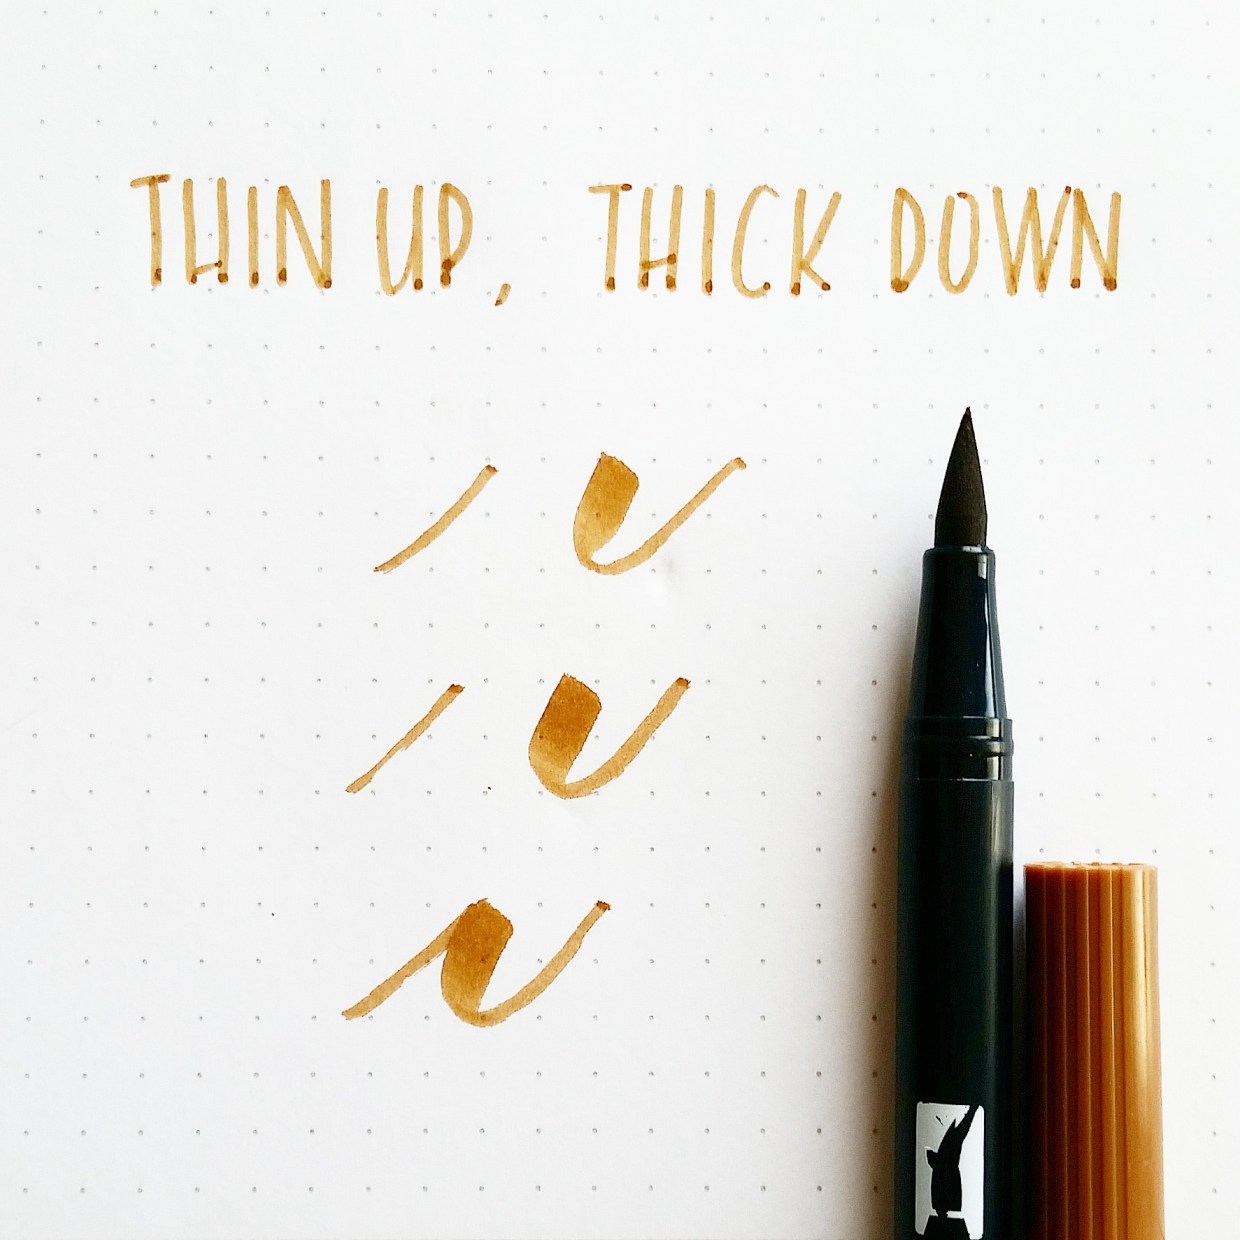 THIN UP, THICK DOWN